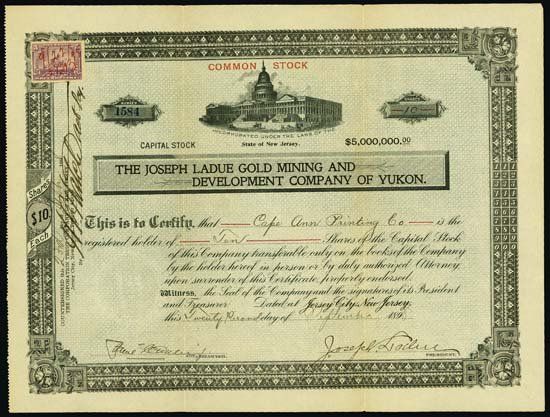 COMMON STOCK
NUMBER
1584
SHARES
10
INCORPORATED UNDER THE LAWS OF THE
State of New Jersey.
CAPITAL STOCK
$5,000,000.00
THE JOSEPH LADUE GOLD MINING AND
DEVELOPMENT COMPANY OF YUKON.
This is to Certify, that Cape Ann Printing Co is the
registered holder of Ten Shares of the Capital Stock
of this Company transferable only on the books of the Company
by the holder hereof in person or by duly authorized Attorney
upon surrender of this Certificate properly endorsed.
Witness, the Seal of the Company and the signatures of its President
and Treasurer Dated at Jersey City, New Jersey,
this Twenty Second day of 189
TREASURER.
Joseph Ladue
PRESIDENT.
Shares
$10
Each
COUNTERSIGNED
THE CORPORATION TRUST